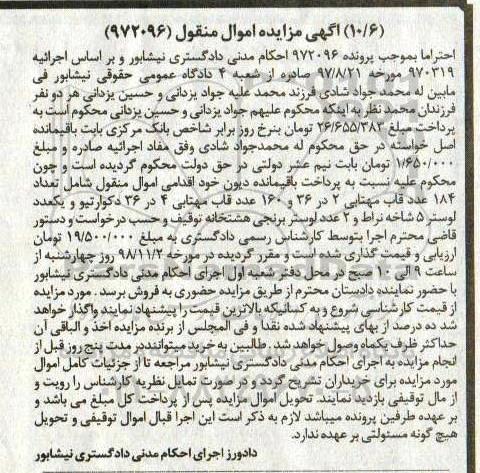 (۱۰/۶) آگهی مزایده اموال منقول (۹۷۲۰۹۶)
احتراما بموجب پرونده ۹۷۲۰۹۶ احکام مدنی دادگستری نیشابور و بر اساس اجرائیه
۹۷۰۳۱۹ مورخه ۹۷/۸/۲۱ صادره از شعبه ۴ دادگاه عمومی حقوقی نیشابور فی
مابین له محمد جواد شادی فرزند محمد علیه جواد یزدانی و حسین یزدانی هر دو نفر
فرزندان محمد نظر به اینکه محکوم علیهم جواد یزدانی و حسین یزدانی محکوم است به
پرداخت مبلغ ۲۶/۶۵۵/۳۸۲ تومان بنرخ روز برابر شاخص بانک مرکزی بابت باقیمانده
اصل خواسته در حق محکوم له محمدجواد شادی وفق مفاد اجرائیه صادره و مبلغ
۱/۶۵۰/۰۰۰ تومان بابت نیم عشر دولتی در حق دولت محکوم گردیده است و چون
محکوم علیه نسبت به پرداخت باقیمانده دیون خود اقدامی اموال منقول شامل تعداد
۱۸۴ عدد قاب مهتابی ۲ در ۳۶ و ۱۶۰ عدد قاب مهتابی ۴ در ۳۶ دکوراتیو و یکعدد
لوستر ۵ شاخه نراط و ۲ عدد لوستر برنجی هشتخانه توقیف و حسب درخواست و دستور
قاضی محترم اجرا بتوسط کارشناس رسمی دادگستری به مبلغ ۱۹/۵۰۰/۰۰۰ تومان
ارزیابی و قیمت گذاری شده است و مقرر گردیده در مورخه ۹۸/۱۱/۲ روز چهارشنبه از
ساعت ۹ الی ۱۰ صبح در محل دفتر شعبه اول اجرای احکام مدنی دادگستری نیشابور
با حضور نماینده دادستان محترم از طریق مزایده حضوری به فروش برسد . مورد مزایده
از قیمت کارشناسی شروع و به کسانیکه بالاترین قیمت را پیشنهاد نمایند واگذار خواهد
شد ده درصد از بهای پیشنهاد شده نقدا و فی المجلس از برنده مزایده اخذ و الباقی آن
حداکثر ظرف یکماه وصول خواهد شد. طالبین به خرید میتوانند در مدت پنج روز قبل از
انجام مزایده به اجرای احکام مدنی دادگستری نیشابور مراجعه تا از جزئیات کامل اموال
مورد مزایده برای خریداران تشریح گردد و در صورت تمایل نظریه کارشناس را رویت و
از مال توقیفی بازدید نمایند. تحویل اموال مزایده پس از پرداخت کل مبلغ می باشد و
بر عهده طرفین پرونده میباشد لازم به ذکر است این اجرا قبال اموال توقیفی و تحویل
هیچ گونه مسئولتی بر عهده ندارد.
دادورز اجرای احکام مدنی دادگستری نیشابور